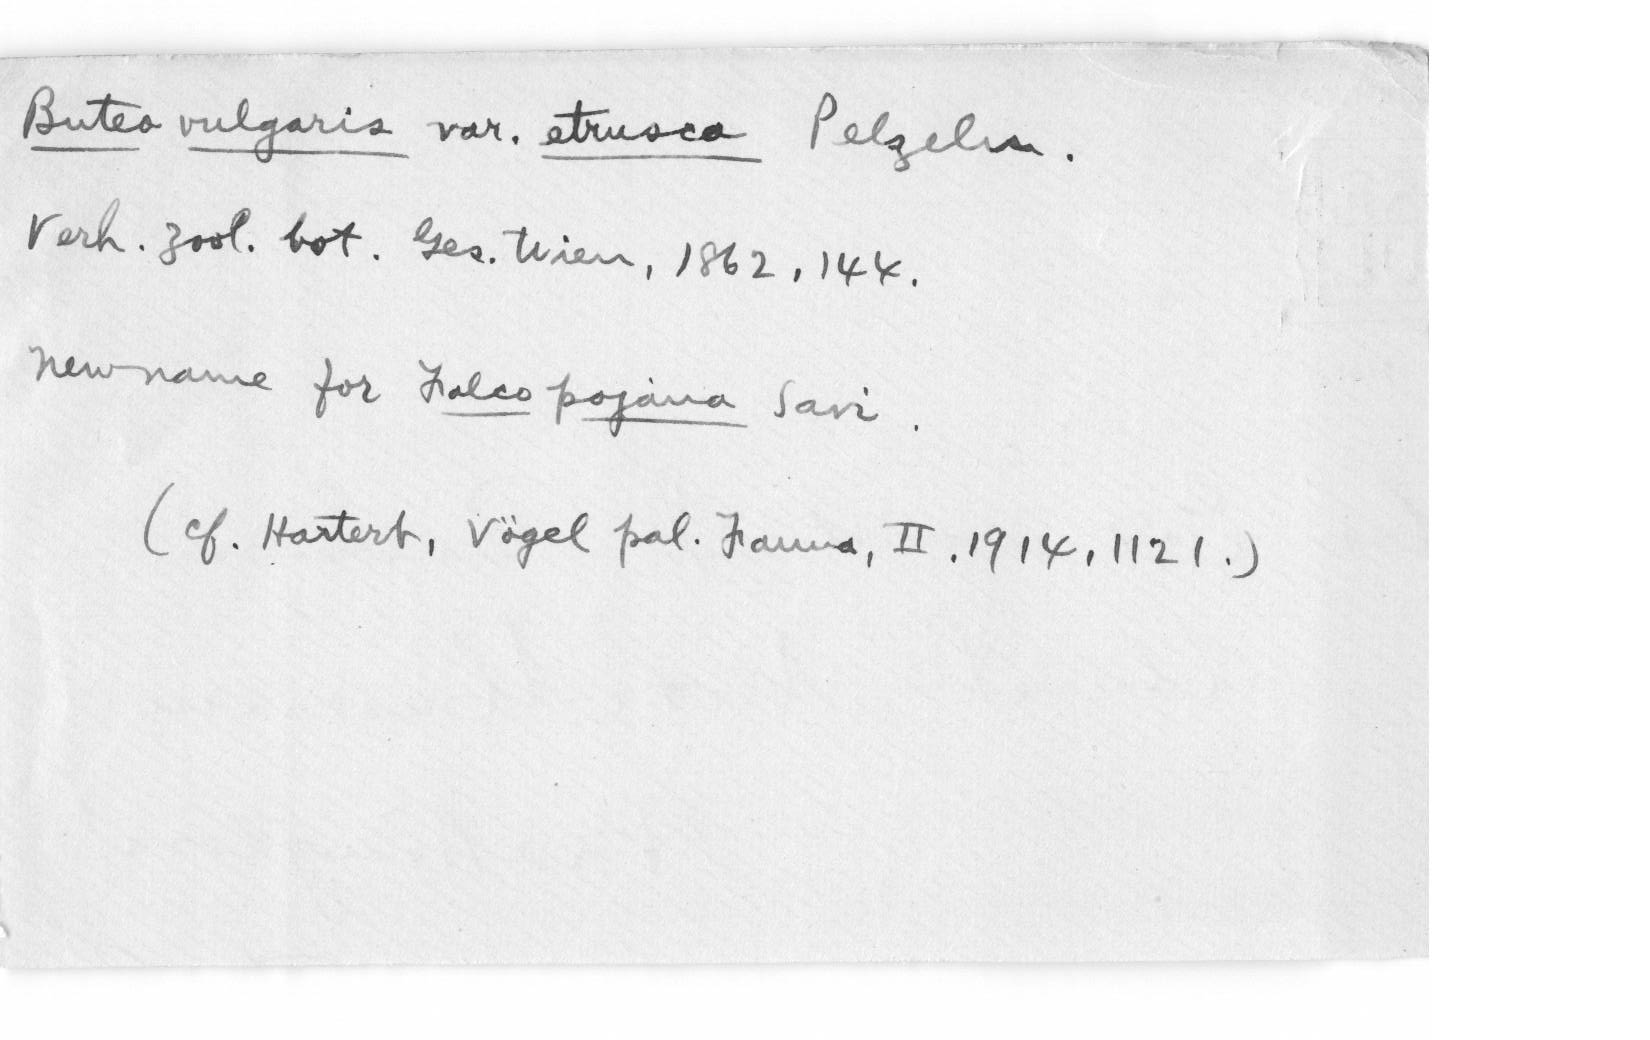 Buteo vulgaris var. etrusca Pelzeln.
Verh. zool. bot. Ges. Wien, 1862, 144.
New name for Falco pojana Savi.
(cf. Hartert, Vögel pal. Fauna, II. 1914, 1121.)